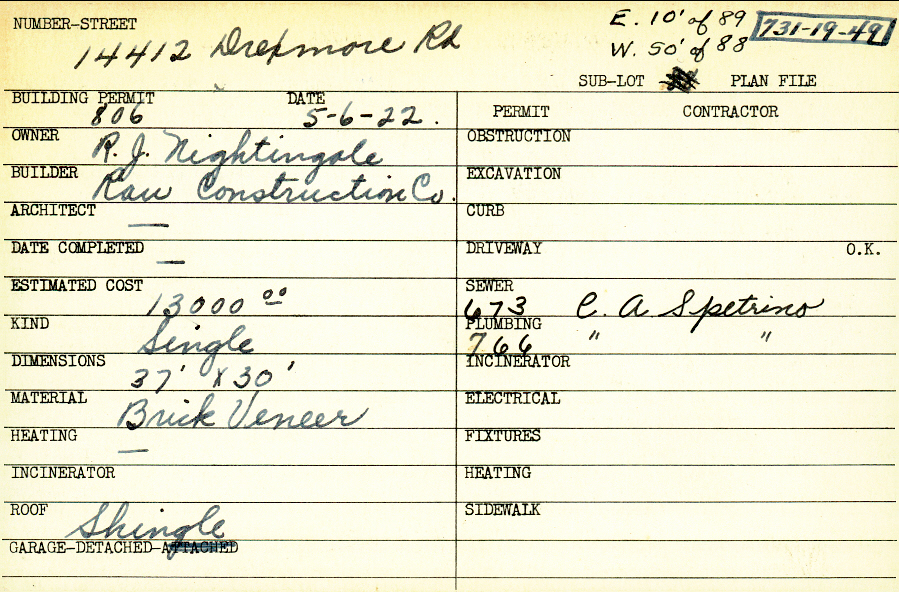 NUMBER-STREET
14412 Drexmore Rd
E. 10' of 89
W. 50' of 88
731-19-49
SUB-LOT PLAN FILE
BUILDING PERMIT DATE
806 5-6-22.
OWNER R. J. Nightingale
BUILDER Rau Construction Co.
ARCHITECT —
DATE COMPLETED —
ESTIMATED COST 13000 00
KIND Single
DIMENSIONS 37' X 30'
MATERIAL Brick Veneer
HEATING —
INCINERATOR
ROOF Shingle
GARAGE-DETACHED-ATTACHED
PERMIT CONTRACTOR
OBSTRUCTION
EXCAVATION
CURB
DRIVEWAY O.K.
SEWER
673 C. A. Spetrino
PLUMBING
766 " "
INCINERATOR
ELECTRICAL
FIXTURES
HEATING
SIDEWALK